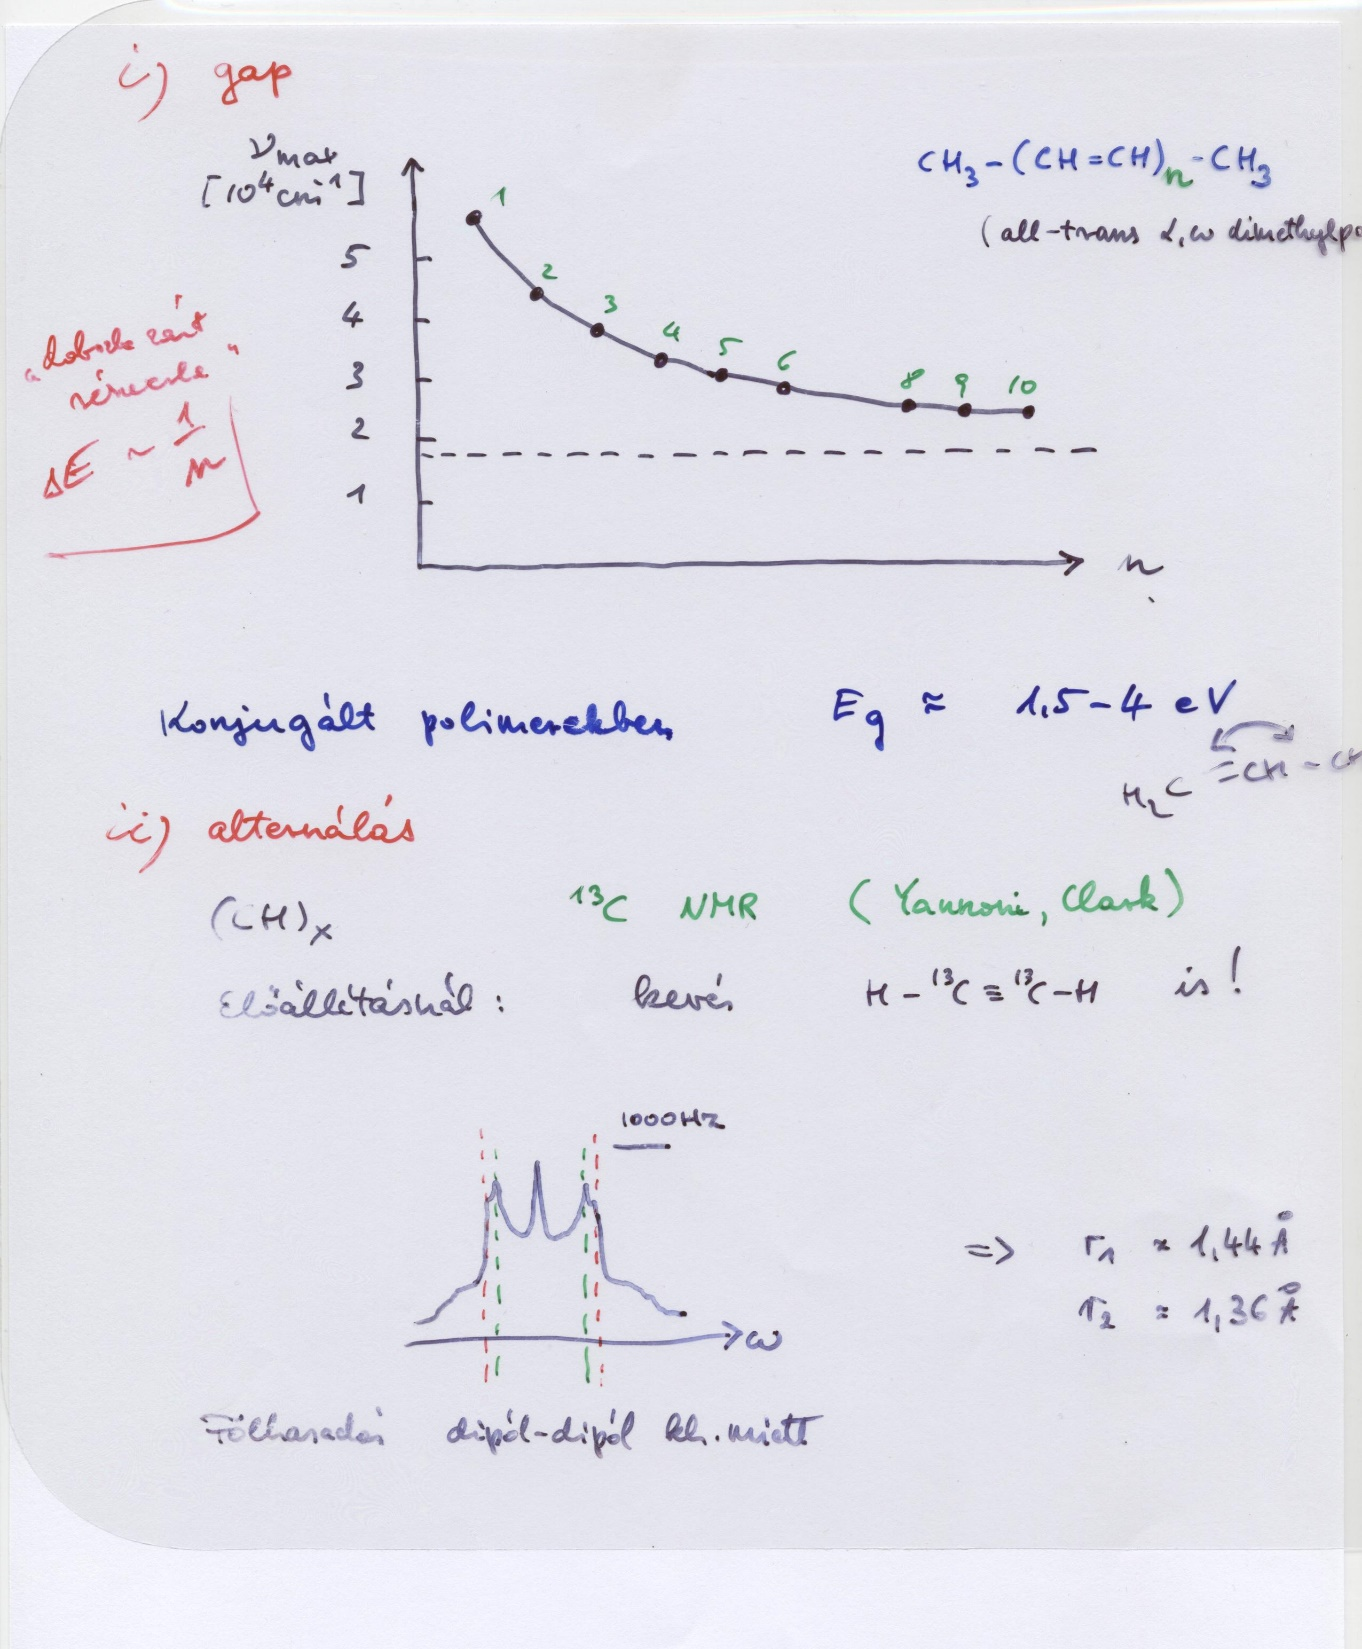 i) gap
ν max
[10⁴ cm⁻¹]
CH₃-(CH=CH)n-CH₃
(all-trans α,ω dimethylpo
5
4
3
2
1
1 2 3 4 5 6 8 9 10
n
„dobozba zárt
részecske"
ΔE ~ 1/n
Konjugált polimerekben Eg ≈ 1,5-4 eV
H₂C=CH-CH
ii) alternálás
(CH)x ¹³C NMR (Yannoni, Clark)
Előállításnál: kevés H-¹³C≡¹³C-H is!
1000HZ
ω
=> r₁ ≈ 1,44 Å
r₂ ≈ 1,36 Å
Fölhasadás dipól-dipól kh. miatt